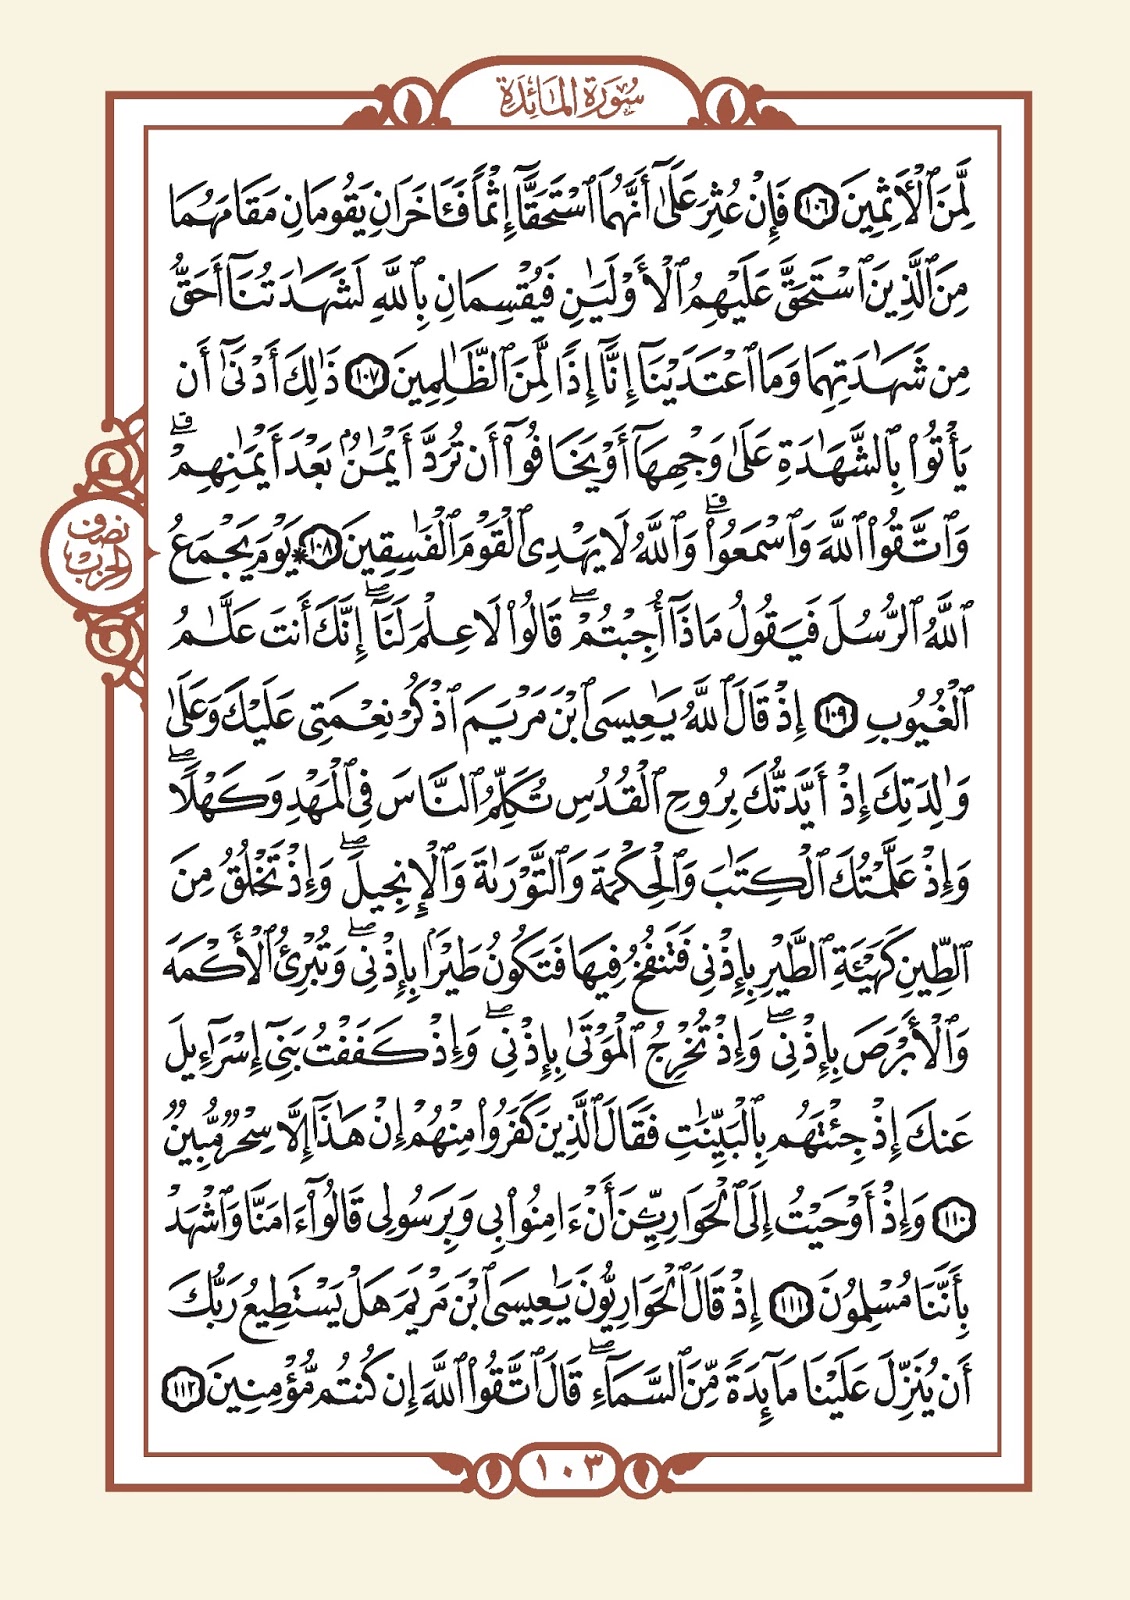 سُورَةُ المَائِدَة
لَّمِنَ ٱلْأٓثِمِينَ ١٠٦ فَإِنْ عُثِرَ عَلَىٰٓ أَنَّهُمَا ٱسْتَحَقَّآ إِثْمًا فَـَٔاخَرَانِ يَقُومَانِ مَقَامَهُمَا
مِنَ ٱلَّذِينَ ٱسْتَحَقَّ عَلَيْهِمُ ٱلْأَوْلَيَٰنِ فَيُقْسِمَانِ بِٱللَّهِ لَشَهَٰدَتُنَآ أَحَقُّ
مِن شَهَٰدَتِهِمَا وَمَا ٱعْتَدَيْنَآ إِنَّآ إِذًا لَّمِنَ ٱلظَّٰلِمِينَ ١٠٧ ذَٰلِكَ أَدْنَىٰٓ أَن
يَأْتُوا۟ بِٱلشَّهَٰدَةِ عَلَىٰ وَجْهِهَآ أَوْ يَخَافُوٓا۟ أَن تُرَدَّ أَيْمَٰنٌۢ بَعْدَ أَيْمَٰنِهِمْ ۗ
وَٱتَّقُوا۟ ٱللَّهَ وَٱسْمَعُوا۟ ۗ وَٱللَّهُ لَا يَهْدِى ٱلْقَوْمَ ٱلْفَٰسِقِينَ ١٠٨ * يَوْمَ يَجْمَعُ
ٱللَّهُ ٱلرُّسُلَ فَيَقُولُ مَاذَآ أُجِبْتُمْ ۖ قَالُوا۟ لَا عِلْمَ لَنَآ ۖ إِنَّكَ أَنتَ عَلَّٰمُ
ٱلْغُيُوبِ ١٠٩ إِذْ قَالَ ٱللَّهُ يَٰعِيسَى ٱبْنَ مَرْيَمَ ٱذْكُرْ نِعْمَتِى عَلَيْكَ وَعَلَىٰ
وَٰلِدَتِكَ إِذْ أَيَّدتُّكَ بِرُوحِ ٱلْقُدُسِ تُكَلِّمُ ٱلنَّاسَ فِى ٱلْمَهْدِ وَكَهْلًا ۖ
وَإِذْ عَلَّمْتُكَ ٱلْكِتَٰبَ وَٱلْحِكْمَةَ وَٱلتَّوْرَىٰةَ وَٱلْإِنجِيلَ ۖ وَإِذْ تَخْلُقُ مِنَ
ٱلطِّينِ كَهَيْـَٔةِ ٱلطَّيْرِ بِإِذْنِى فَتَنفُخُ فِيهَا فَتَكُونُ طَيْرًۢا بِإِذْنِى ۖ وَتُبْرِئُ ٱلْأَكْمَهَ
وَٱلْأَبْرَصَ بِإِذْنِى ۖ وَإِذْ تُخْرِجُ ٱلْمَوْتَىٰ بِإِذْنِى ۖ وَإِذْ كَفَفْتُ بَنِىٓ إِسْرَٰٓءِيلَ
عَنكَ إِذْ جِئْتَهُم بِٱلْبَيِّنَٰتِ فَقَالَ ٱلَّذِينَ كَفَرُوا۟ مِنْهُمْ إِنْ هَٰذَآ إِلَّا سِحْرٌ مُّبِينٌ
١١٠ وَإِذْ أَوْحَيْتُ إِلَى ٱلْحَوَارِيِّـۧنَ أَنْ ءَامِنُوا۟ بِى وَبِرَسُولِى قَالُوٓا۟ ءَامَنَّا وَٱشْهَدْ
بِأَنَّنَا مُسْلِمُونَ ١١١ إِذْ قَالَ ٱلْحَوَارِيُّونَ يَٰعِيسَى ٱبْنَ مَرْيَمَ هَلْ يَسْتَطِيعُ رَبُّكَ
أَن يُنَزِّلَ عَلَيْنَا مَآئِدَةً مِّنَ ٱلسَّمَآءِ ۖ قَالَ ٱتَّقُوا۟ ٱللَّهَ إِن كُنتُم مُّؤْمِنِينَ ١١٢
نصف
الحزب
١٠٣